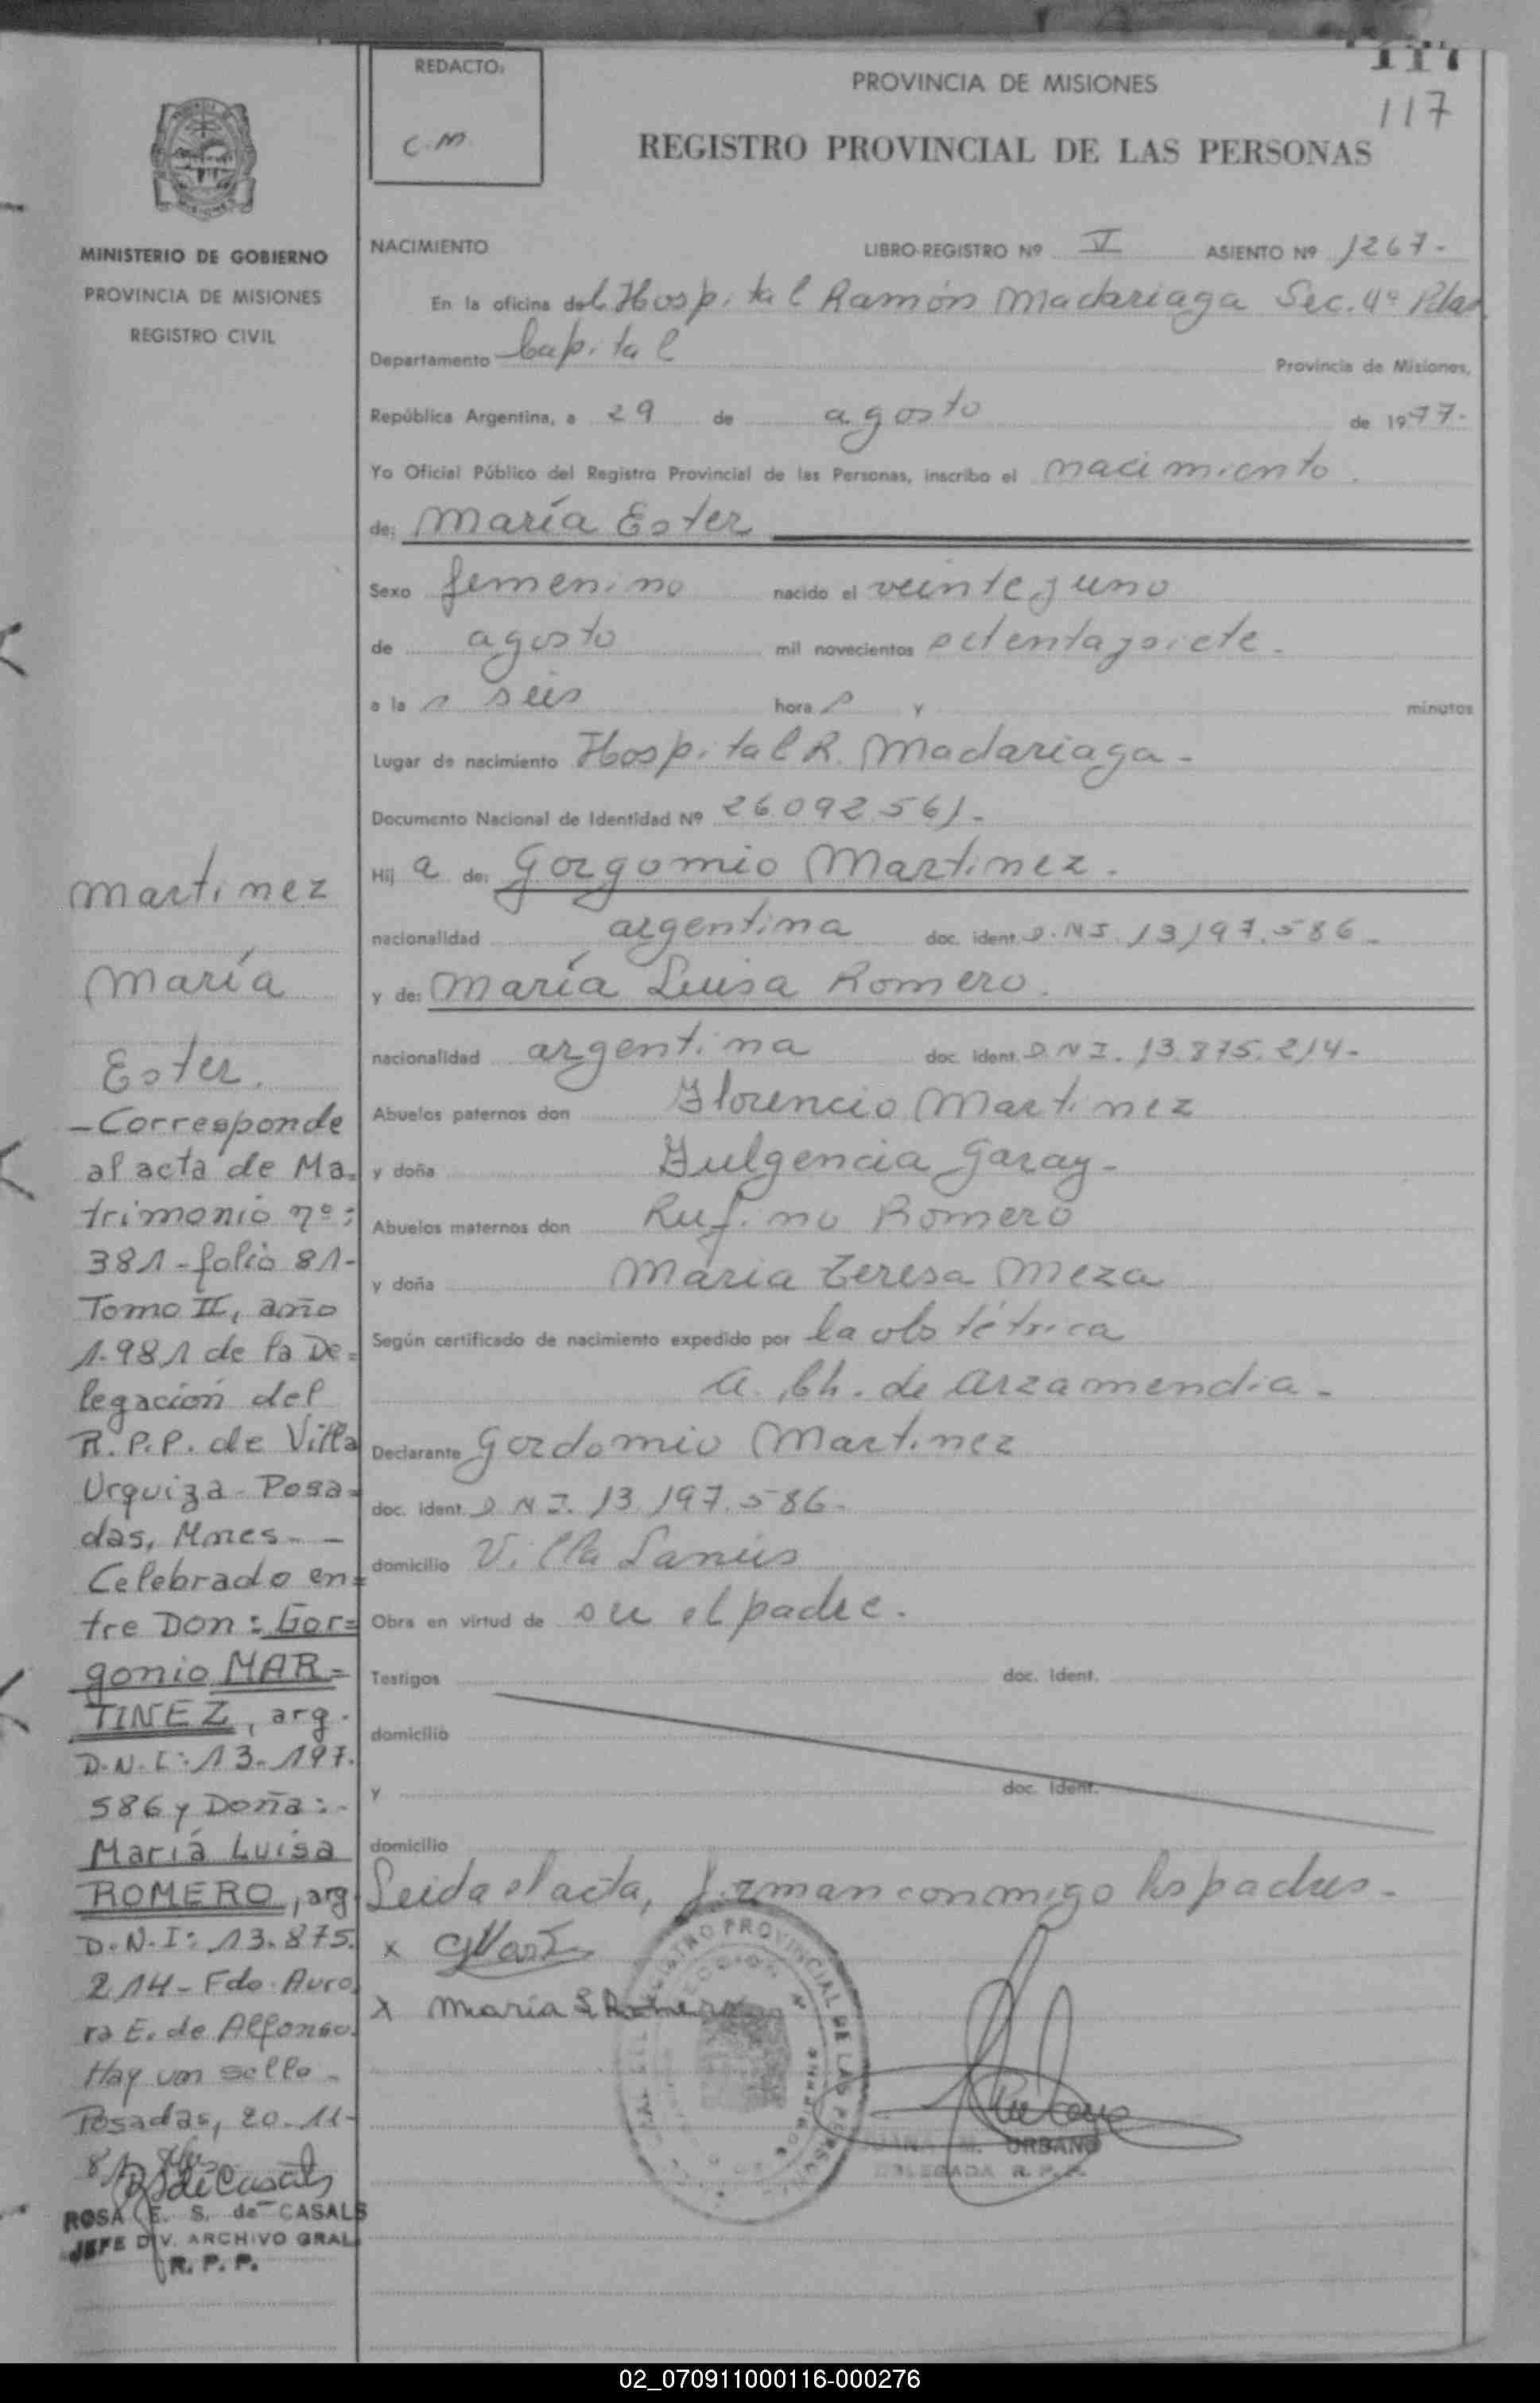 117
REDACTO:
C.M
PROVINCIA DE MISIONES
117
REGISTRO PROVINCIAL DE LAS PERSONAS
MINISTERIO DE GOBIERNO
PROVINCIA DE MISIONES
REGISTRO CIVIL
NACIMIENTO LIBRO-REGISTRO Nº V ASIENTO Nº 1267-
En la oficina del Hospital Ramón Madariaga Sec. 4ª Pdas
Departamento Capital Provincia de Misiones,
República Argentina, a 29 de agosto de 1977-
Yo Oficial Público del Registro Provincial de las Personas, inscribo el nacimiento.
de: María Ester
Sexo femenino nacido el veinteyuno
de agosto mil novecientos setentaysiete-
a la s seis hora s y minutos
Lugar de nacimiento Hospital R. Madariaga-
Documento Nacional de Identidad Nº 26.092.561-
Hij a de: Gorgomio Martinez.
nacionalidad argentina doc. ident. D.N.I. 13197.586-
y de: María Luisa Romero.
nacionalidad argentina doc. ident. D.N.I. 13.875.214-
Abuelos paternos don Florencio Martinez
y doña Fulgencia Garay-
Abuelos maternos don Rufino Romero
y doña María Teresa Meza
Según certificado de nacimiento expedido por la obstétrica
a. Ch. de Arzamendia-
Declarante Gordomio Martinez
doc. ident. D.N.I. 13.197.586-
domicilio Villa Lanús
Obra en virtud de ser el padre.
Testigos doc. Ident.
domicilio
y doc. Ident.
domicilio
Leida el acta, firman conmigo los padres-
x GMart
x Maria L Romero
REGISTRO PROVINCIAL DE LAS PERSONAS
JUANA M. URBANO
DELEGADA R. P. P.
Martinez
María
Ester.
-Corresponde
al acta de Ma-
trimonio nº:
381-folio 81-
Tomo II, año
1.981 de la De=
legación del
R.P.P. de Villa
Urquiza-Posa=
das, Mnes.- -
Celebrado en=
tre Don: Gor=
gonio MAR=
TINEZ, arg.
D.N.I: 13-197.
586 y Doña:-
María Luisa
ROMERO, arg
D.N.I: 13.875.
214-Fdo. Auro
ra E. de Alfonso.
Hay un sello-
Posadas, 20-11-
81
ROSA E. S. de CASALS
JEFE DIV. ARCHIVO GRAL
R. P. P.
02_070911000116-000276